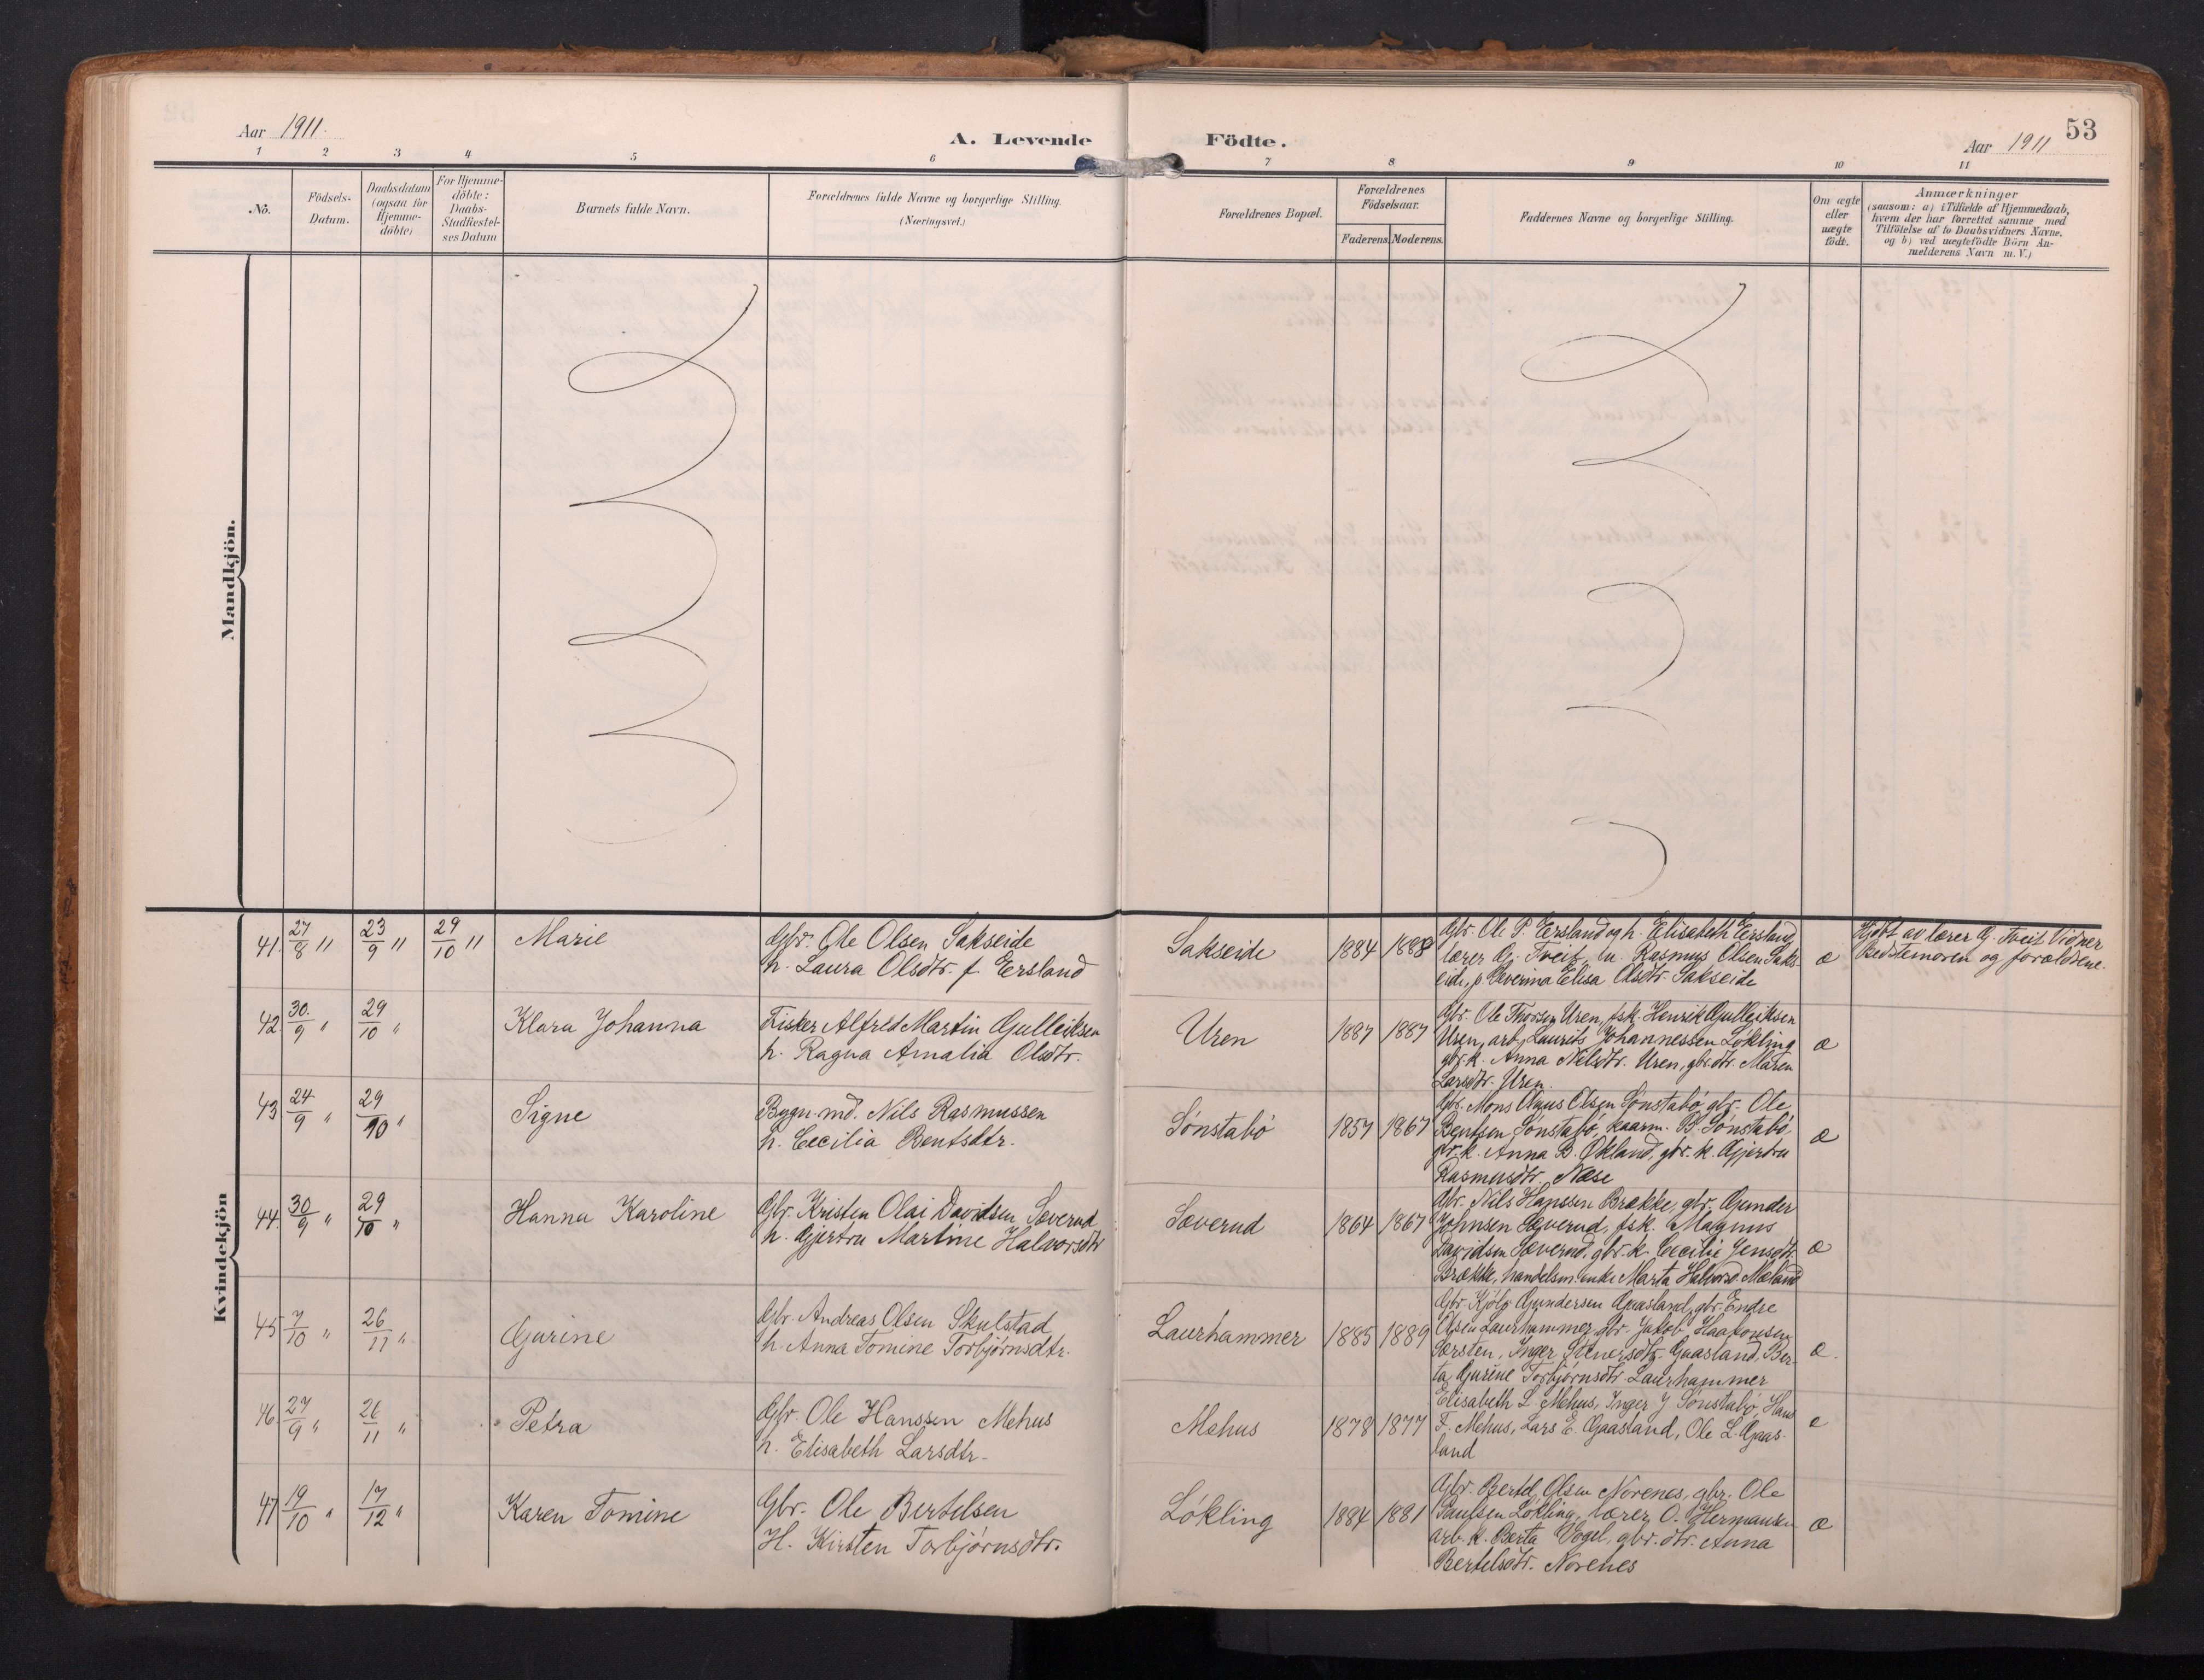 Aar 1911.
A. Levende Födte.
53
Aar 1911
1 2 3 4 5 6 7 8 9 10 11
No.
Födsels-
Datum.
Daabsdatum
(ogsaa for
Hjemme-
döbte)
For Hjemme-
döbte:
Daabs-
Stadfæstel-
ses Datum
Barnets fulde Navn.
Forældrenes fulde Navne og borgerlige Stilling.
(Næringsvei.)
Forældrenes Bopæl.
Forældrenes
Födselsaar.
Faderens. Moderens.
Faddernes Navne og borgerlige Stilling.
Om ægte
eller
uægte
födt.
Anmærkninger
(saasom: a) i Tilfælde af Hjemmedaab,
hvem der har forrettet samme med
Tilföielse af to Daabsvidners Navne,
og b) ved uægtefödte Börn An-
melderens Navn m. V.)
Mandkjön.
Kvindekjön
41. 27/8 " 23/9 " 29/10 " Marie
Gbr. Ole Olsen Sakseide
h. Laura Olsdtr. f. Ersland
Sakseide 1884 1888
Gbr. Ole P. Ersland og h. Elisabeth Ersland,
lærer G. Tveit, u. Rasmus Olsen Saks-
eide, p. Severina Elisa Olsdtr. Sakseide
æ
Hjdbt av lærer G. Tveit Vidner
Bedstemoren og forældrene.
42. 30/9 " 29/10 " Klara Johanna
Fisker Alfred Martin Gulleiksen
h. Ragna Amalia Olsdtr.
Uren 1887 1887
Gbr. Ole Thorsen Uren, fsk. Henrik Gulleiksen
Uren, arb. Laurits Johannessen Løkling
gbr. k. Anna Nilsdtr. Uren, gbr. dtr. Maren
Larsdtr. Uren.
æ
43. 24/9 " 29/10 " Signe
Bygn. md. Nils Rasmussen
h. Cecilia Bentsdtr.
Sønstabø 1857 1867
Gbr. Mons Olsen Sønstabø, gbr. Ole
Bentsen Sønstabø, B. Sønstabø,
gbr. k. Anna B. Økland, gbr. k. Gjertru
Rasmusdtr. Næse
æ
44. 30/9 " 29/10 " Hanna Karoline
Gbr. Kristen Olai Davidsen Sæverud
h. Gjertru Martine Halvorsdtr
Sæverud 1864 1867
Gbr. Nils Hanssen Brække, gbr. Gunder
Johnsen Sæverud, fsk. Magnus
Davidsen Sæverud, gbr. k. Cecilie Jensdtr.
Brække, handelsm. enke Marta Halvorsd. Mæland
æ
45 7/10 " 26/11 " Gurine
Gbr. Andreas Olsen Skulstad
h. Anna Tomine Torbjørnsdtr.
Laurhammer 1885 1889
Gbr. Gundersen Gaasland, gbr. Endre
Olsen Laurhammer, gbr. Jakob Haakonsen
Særsten, Inger Gaasland, Ber-
ta Gurine Torbjørnsdtr. Laurhammer
æ.
46. 27/9 " 26/11 " Petra
Gbr. Ole Hanssen Mehus
h. Elisabeth Larsdtr.
Mehus 1878 1877
Elisabeth L. Mehus, Inger J. Sønstabø, Hans
F. Mehus, Lars E. Gaasland, Ole L. Gaas-
land
æ
47 19/10 " 17/12 " Karen Tomine
Gbr. Ole Bertelsen
H. Kirsten Torbjørnsdtr.
Løkling 1884 1881
Gbr. Bertel Olsen Norenes, gbr. Ole
Paulsen Løkling, lærer O. Hermansen
arb. k. Berta Vogel, gbr. dtr. Anna
Bertelsdtr. Norenes
æ